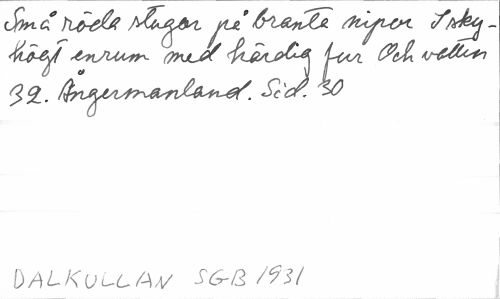 Små röda stugor på branta nipor I sky-
högt enrum med härdig fur Och vatten
32. Ångermanland. Sid. 30
DALKULLAN SGB 1931